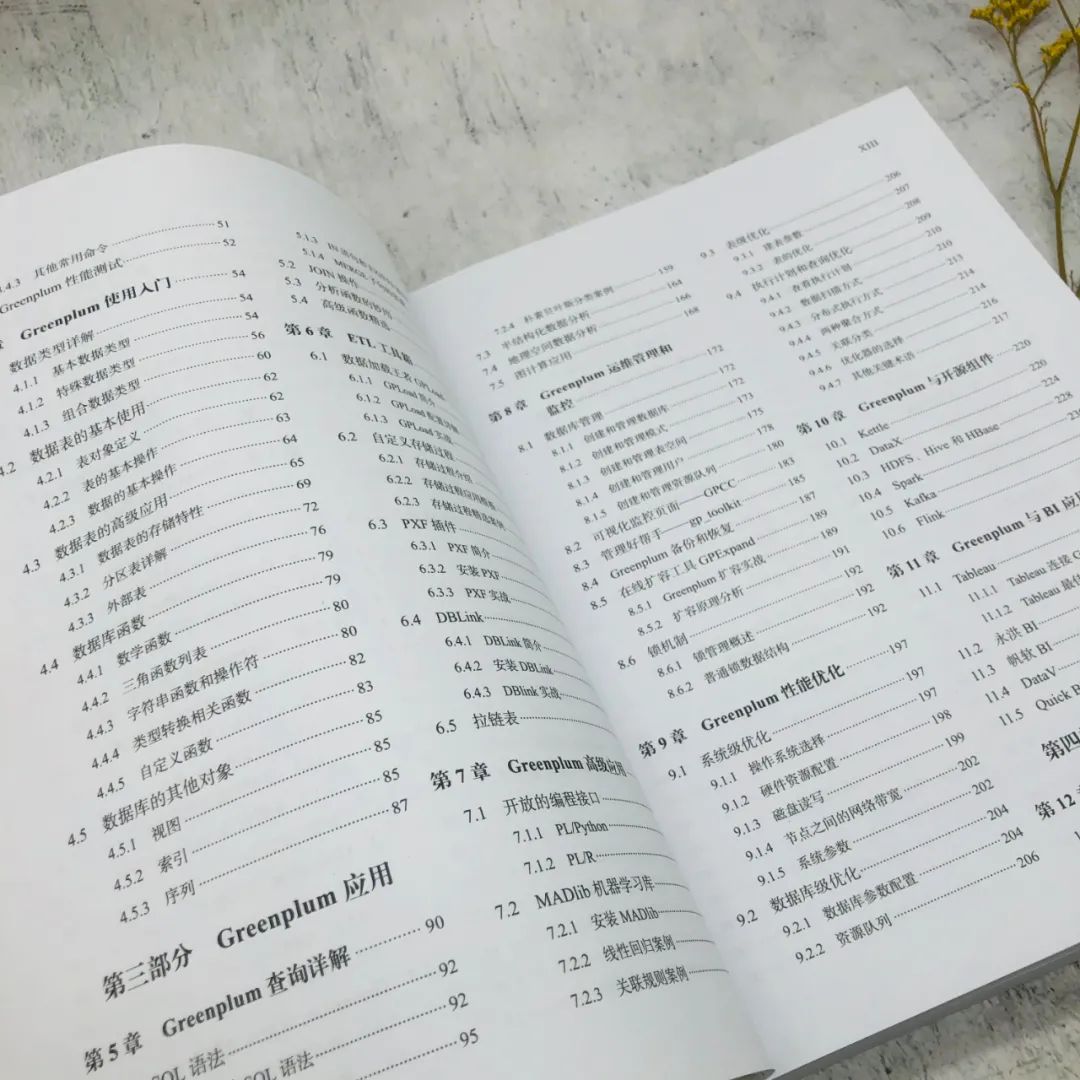 .4.3 其他常用命令 51
Greenplum 性能测试 52
Greenplum 使用入门 54
数据类型详解 54
4.1.1 基本数据类型 54
4.1.2 特殊数据类型 56
4.1.3 组合数据类型 60
4.2 数据表的基本使用 62
4.2.1 表对象定义 62
4.2.2 表的基本操作 63
4.2.3 数据的基本操作 64
4.3 数据表的高级应用 65
4.3.1 数据表的存储特性 69
4.3.2 分区表详解 72
4.3.3 外部表 76
4.4 数据库函数 79
4.4.1 数学函数 79
4.4.2 三角函数列表 80
4.4.3 字符串函数和操作符 80
4.4.4 类型转换相关函数 82
4.4.5 自定义函数 83
4.5 数据库的其他对象 85
4.5.1 视图 85
4.5.2 索引 85
4.5.3 序列 87
第三部分 Greenplum 应用
第 5 章 Greenplum 查询详解 90
SQL 语法 92
SQL 语法 92
95
5.1.3
5.1.4 MERGE
5.2 JOIN 操作
5.3 分析函数的妙用
5.4 高级函数精选
第 6 章 ETL 工具箱
6.1 数据加载王者 GPLoad
6.1.1 GPLoad 简介
6.1.2 GPLoad 配置详解
6.1.3 GPLoad 实战
6.2 自定义存储过程
6.2.1 存储过程介绍
6.2.2 存储过程应用
6.2.3 存储过程精选案例
6.3 PXF 插件
6.3.1 PXF 简介
6.3.2 安装 PXF
6.3.3 PXF 实战
6.4 DBLink
6.4.1 DBLink 简介
6.4.2 安装 DBLink
6.4.3 DBlink 实战
6.5 拉链表
第 7 章 Greenplum 高级应用
7.1 开放的编程接口
7.1.1 PL/Python
7.1.2 PL/R
7.2 MADlib 机器学习库
7.2.1 安装 MADlib
7.2.2 线性回归案例
7.2.3 关联规则案例
XIII
7.2.4 朴素贝叶斯分类案例 159
7.3 半结构化数据分析 164
7.4 地理空间数据分析 166
7.5 图计算应用 168
第 8 章 Greenplum 运维管理和
监控 172
8.1 数据库管理 172
8.1.1 创建和管理数据库 172
8.1.2 创建和管理模式 173
8.1.3 创建和管理表空间 175
8.1.4 创建和管理用户 178
8.1.5 创建和管理资源队列 180
8.2 可视化监控页面——GPCC 183
8.3 管理好帮手——gp_toolkit 185
8.4 Greenplum 备份和恢复 187
8.5 在线扩容工具 GPExpand 189
8.5.1 Greenplum 扩容实战 189
8.5.2 扩容原理分析 191
8.6 锁机制 192
8.6.1 锁管理概述 192
8.6.2 普通锁数据结构 192
第 9 章 Greenplum 性能优化 197
9.1 系统级优化 197
9.1.1 操作系统选择 197
9.1.2 硬件资源配置 198
9.1.3 磁盘读写 199
9.1.4 节点之间的网络带宽 202
9.1.5 系统参数 202
9.2 数据库级优化 204
9.2.1 数据库参数配置 204
9.2.2 资源队列 206
9.3 表级优化 206
9.3.1 建表参数 207
9.3.2 表的优化 208
9.4 执行计划和查询优化 209
9.4.1 查看执行计划 210
9.4.2 数据扫描方式 210
9.4.3 分布式执行方式 213
9.4.4 两种聚合方式 214
9.4.5 关联分类 214
9.4.6 优化器的选择 216
9.4.7 其他关键术语 217
第 10 章 Greenplum 与开源组件 220
10.1 Kettle 220
10.2 DataX 224
10.3 HDFS、Hive 和 HBase 228
10.4 Spark
10.5 Kafka
10.6 Flink
第 11 章 Greenplum 与 BI 应
11.1 Tableau
11.1.1 Tableau 连接
11.1.2 Tableau 最
11.2 永洪 BI
11.3 帆软 BI
11.4 DataV
11.5 Quick
第四
第 12